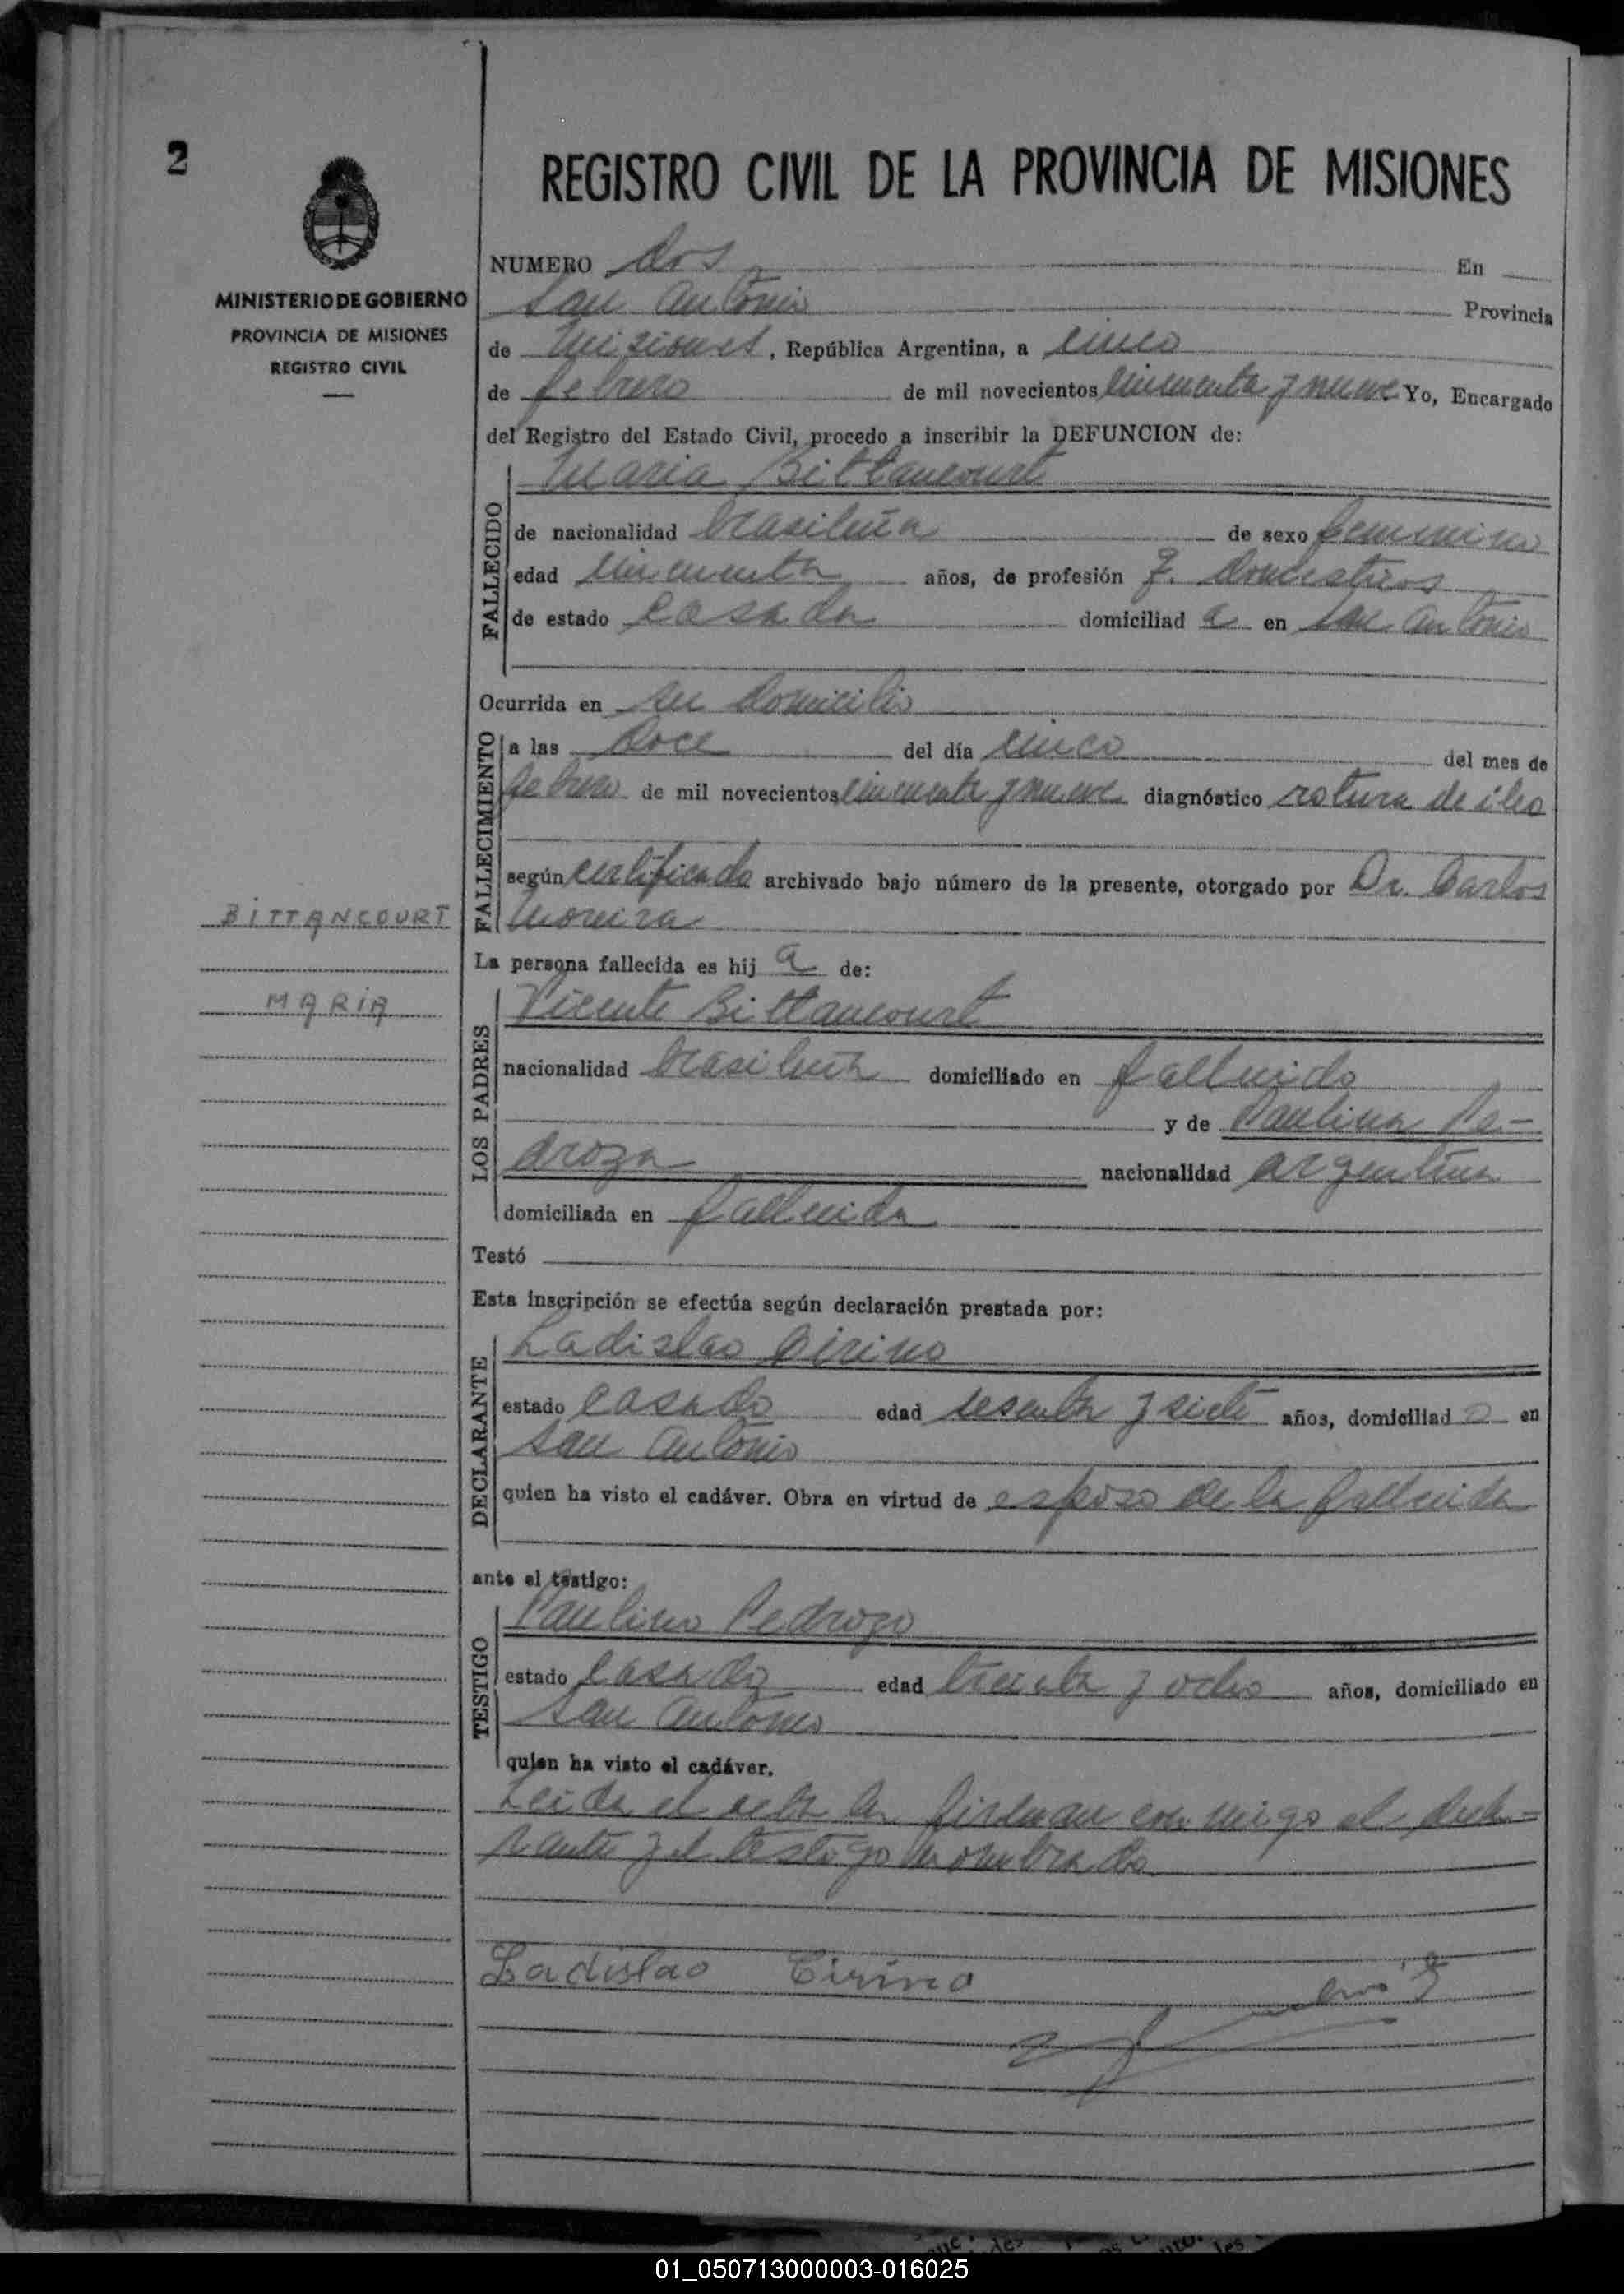 2
REGISTRO CIVIL DE LA PROVINCIA DE MISIONES
MINISTERIO DE GOBIERNO
PROVINCIA DE MISIONES
REGISTRO CIVIL
NUMERO dos En
San Antonio Provincia
de Misiones, República Argentina, a cinco
de febrero de mil novecientos cincuenta y nueve Yo, Encargado
del Registro del Estado Civil, procedo a inscribir la DEFUNCION de:
FALLECIDO
Maria Bittancourt
de nacionalidad brasileña de sexo femenino
edad cincuenta años, de profesión q. domesticos
de estado casada domiciliad a en San Antonio
Ocurrida en su domicilio
FALLECIMIENTO
a las doce del día cinco del mes de
febrero de mil novecientos cincuenta y nueve diagnóstico rotura de ileo
según certificado archivado bajo número de la presente, otorgado por Dr. Carlos
Moreira
BITTANCOURT
MARIA
La persona fallecida es hij a de:
LOS PADRES
Vicente Bittancourt
nacionalidad brasileña domiciliado en fallecido
y de Paulina Pe-
droza nacionalidad argentina
domiciliada en fallecida
Testó
Esta inscripción se efectúa según declaración prestada por:
DECLARANTE
Ladislao Cirino
estado casado edad sesenta y siete años, domiciliad o en
San Antonio
quien ha visto el cadáver. Obra en virtud de esposo de la fallecida
ante el testigo:
TESTIGO
Paulino Pedrozo
estado casado edad treinta y ocho años, domiciliado en
San Antonio
quien ha visto el cadáver.
Leida el acta la firman conmigo el decla=
rante y el testigo nombrado
Ladislao Cirino
01_050713000003-016025